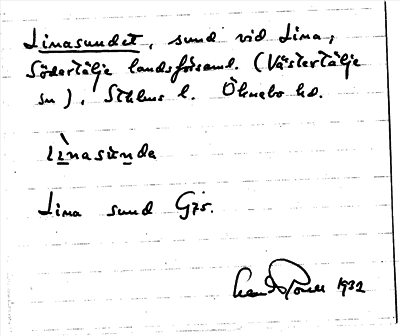 Linasundet, sund vid Lina,
Södertälje landsförsaml. (Västertälje
sn), Sthlms l. Öknebo hd.
lìnasùnda
Lina sund G75.
1932